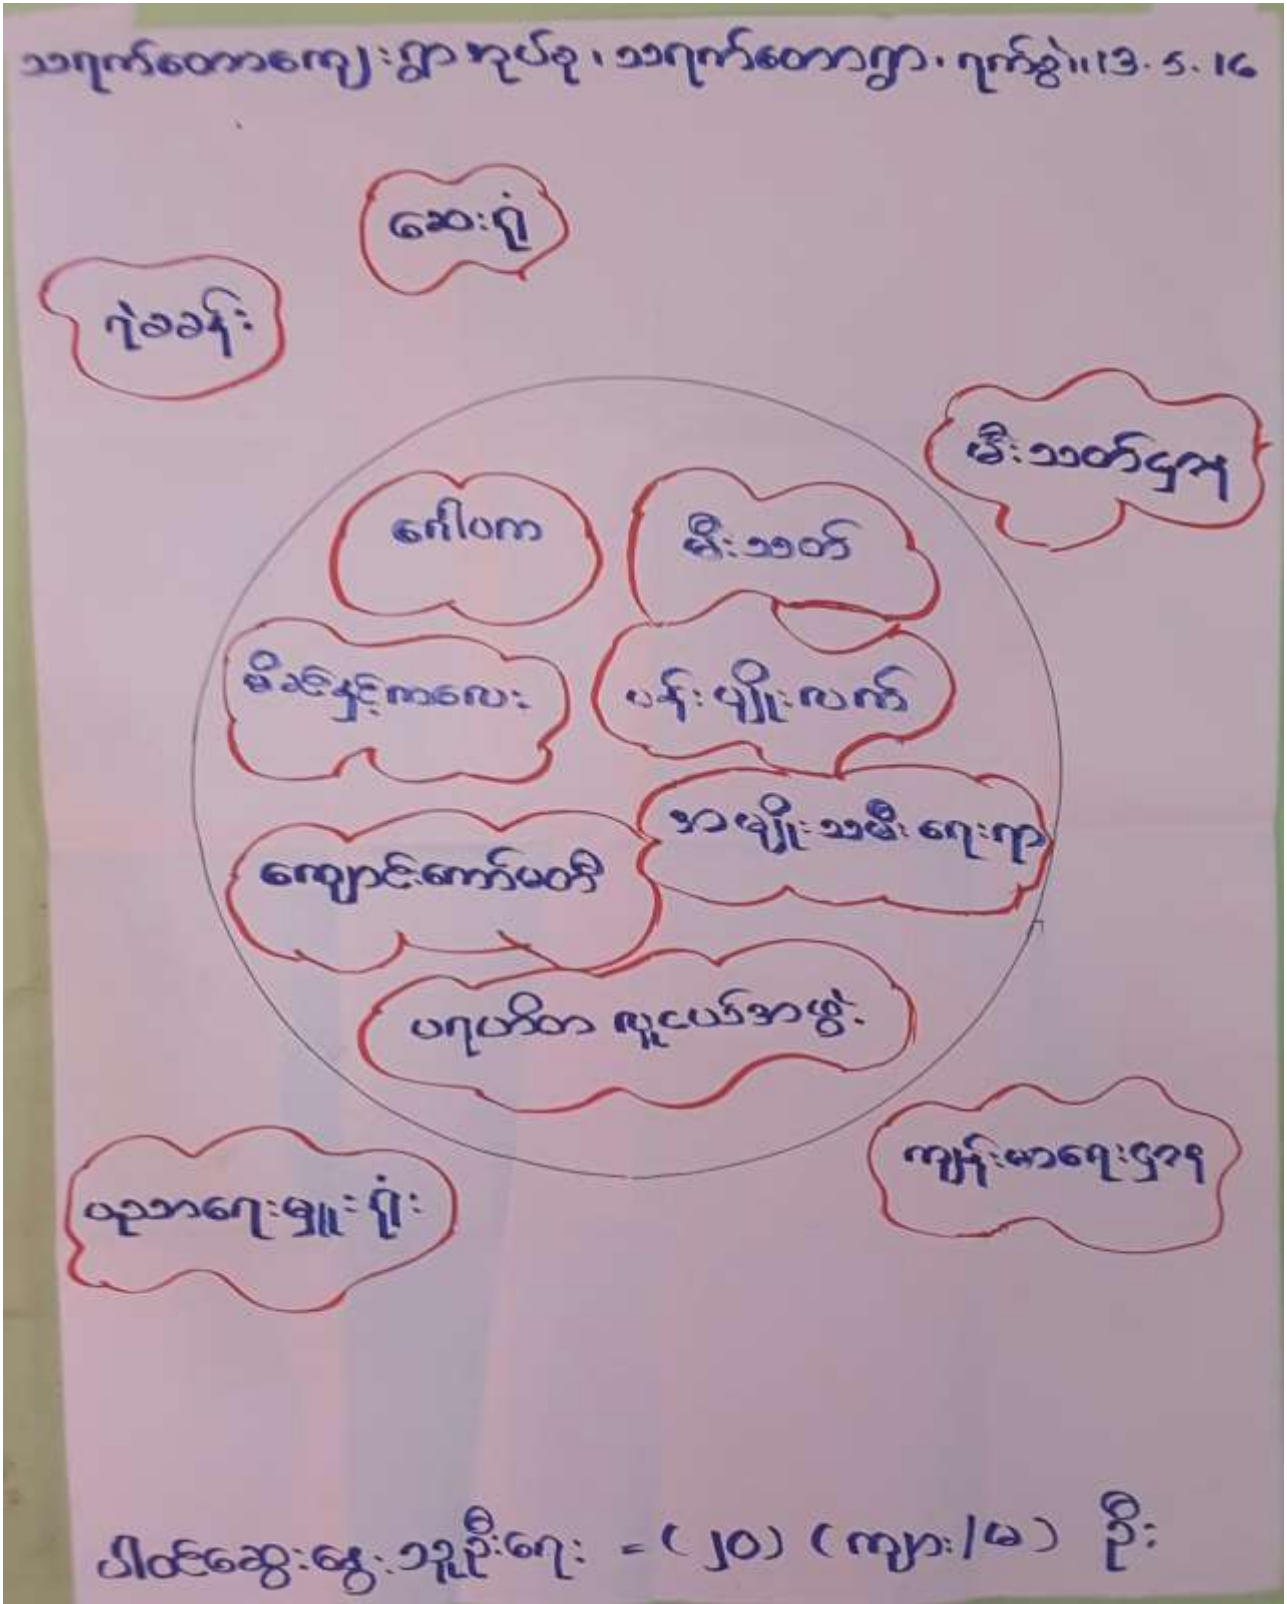 သရက်တောကျေးရွာအုပ်စု ၊ သရက်တောရွာ ၊ ရက်စွဲ။ 13.5.16
ဆေးရုံ
ရဲစခန်း
မီးသတ်ဌာန
ဂေါပက
မီးသတ်
မိခင်နှင့်ကလေး
ပန်းပျိုးလက်
အမျိုးသမီးရေးရာ
ကျောင်းကော်မတီ
ပရဟိတ လူငယ်အဖွဲ့
ကျန်းမာရေးဌာန
ပညာရေးမှူးရုံး
ပါဝင်ဆွေးနွေးသူဦးရေ = (၂၀) (ကျား/မ) ဦး